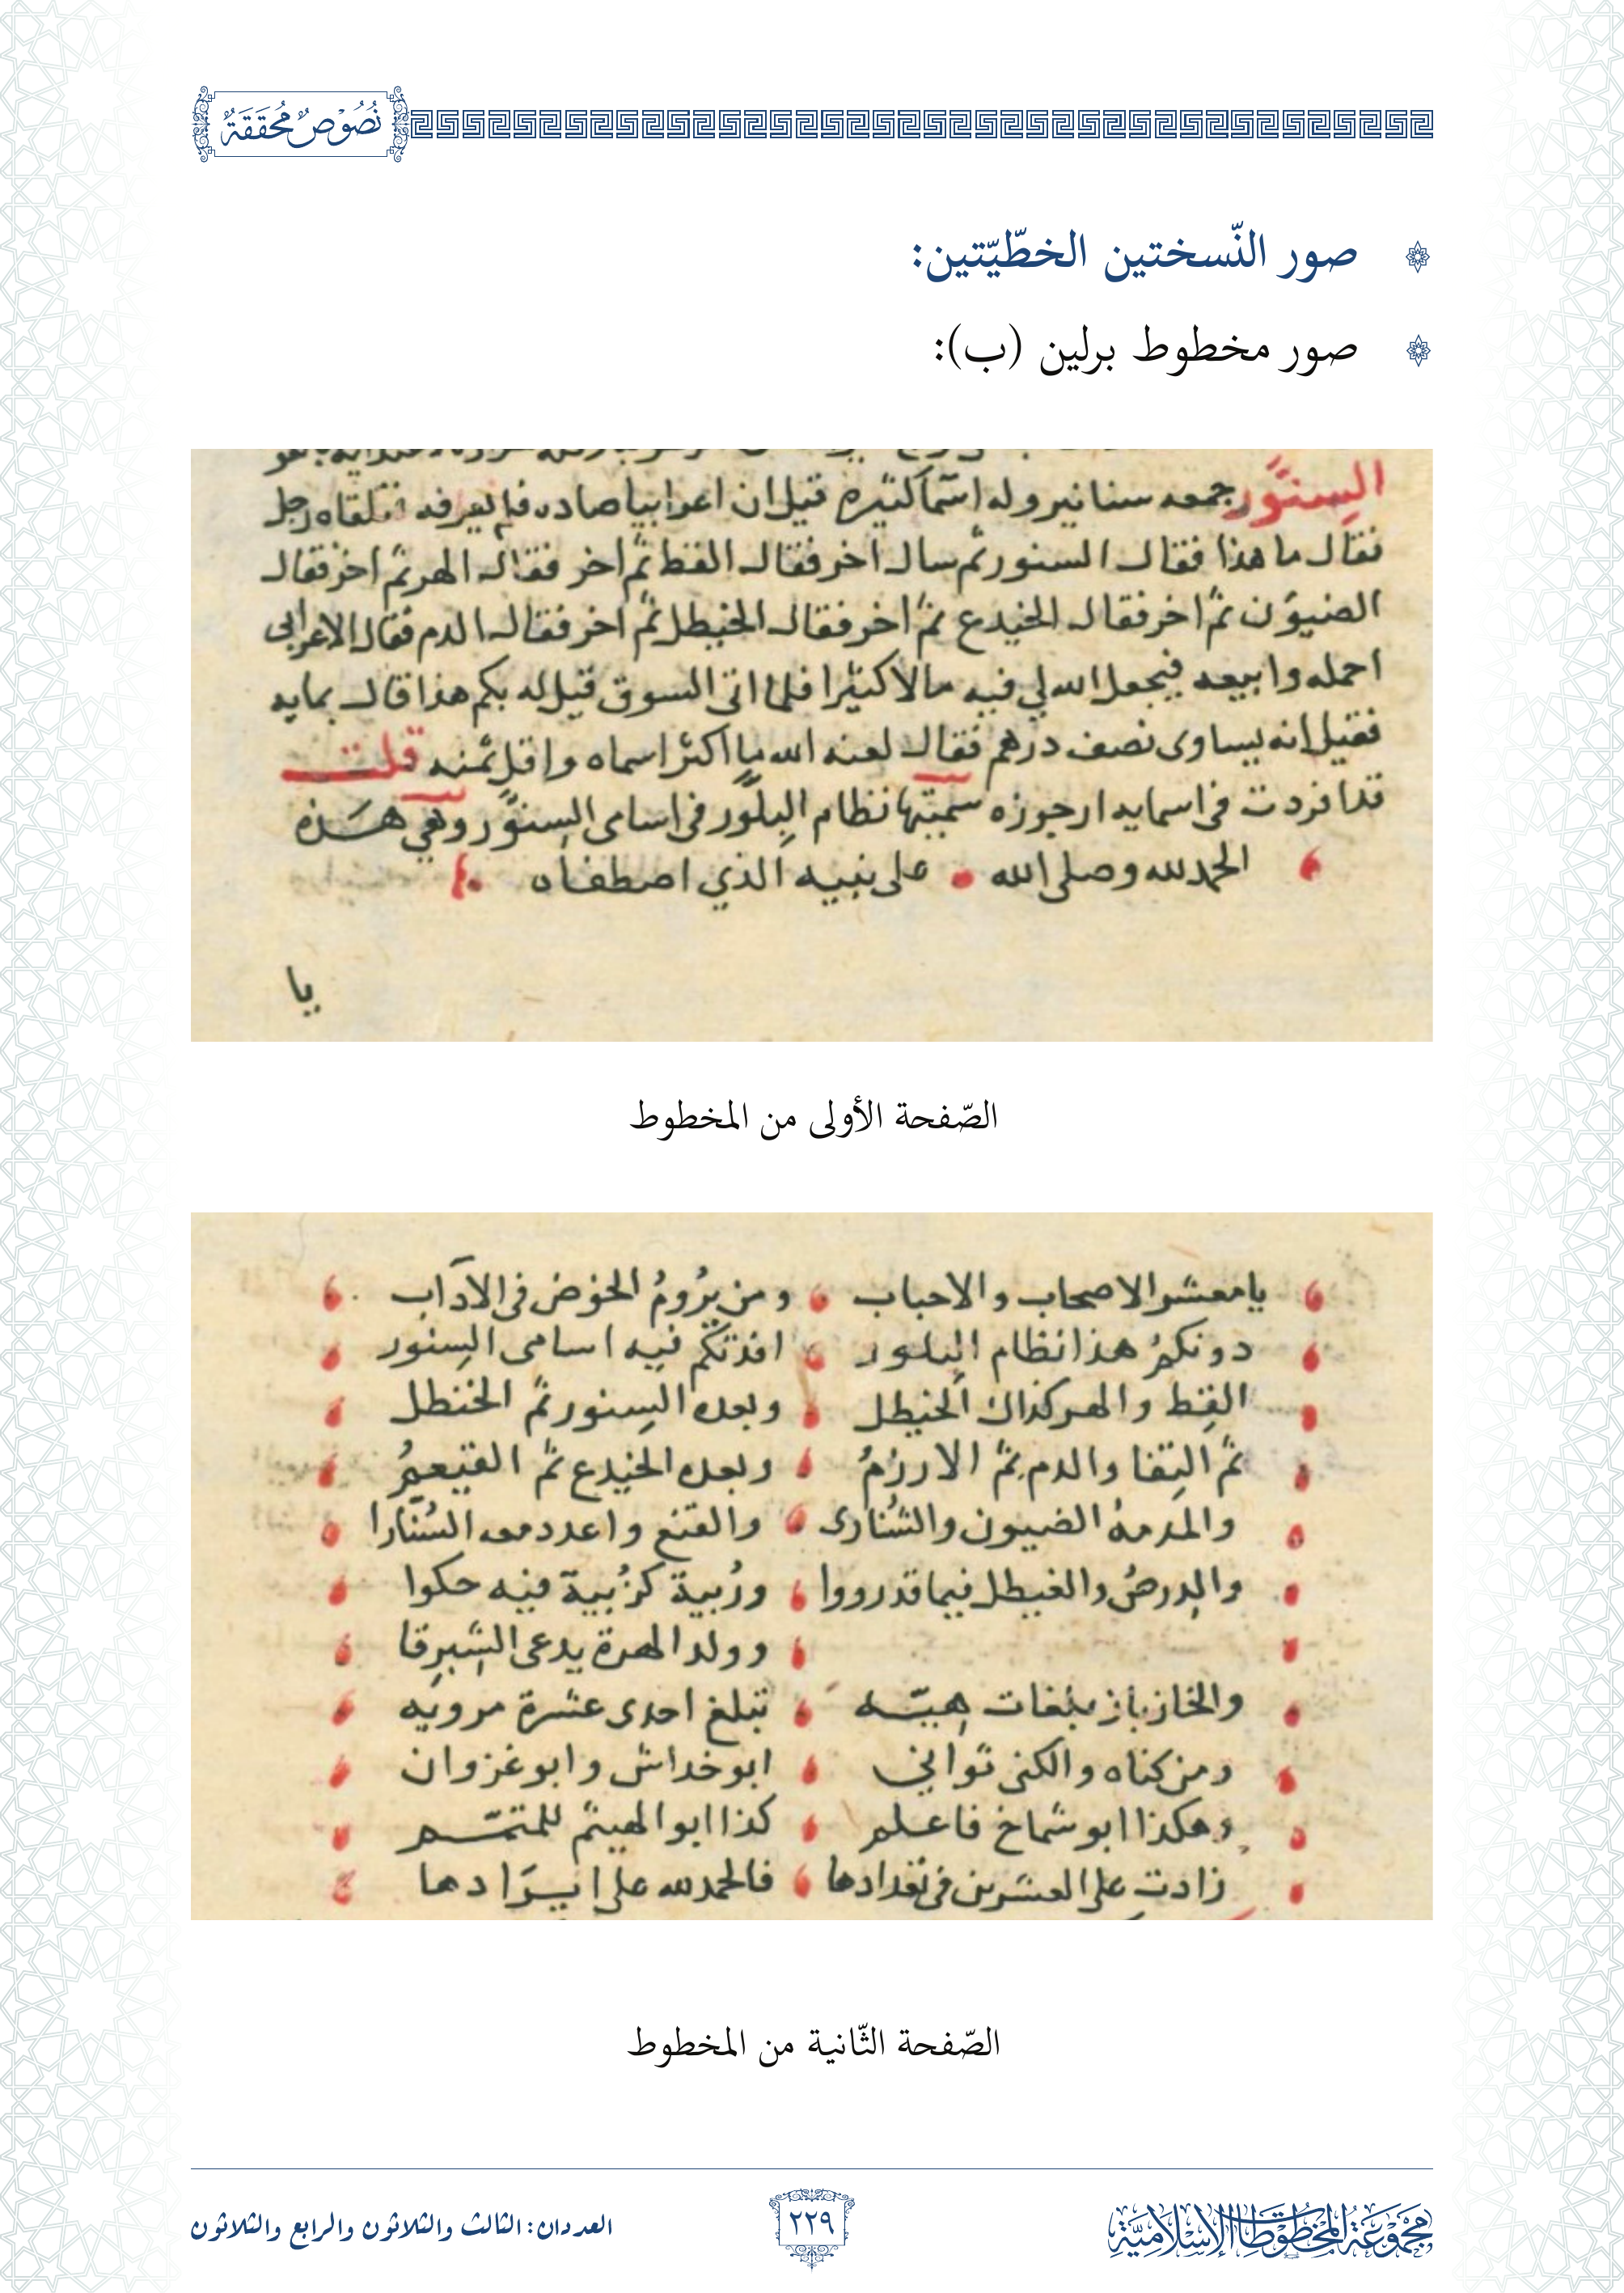 نُصُوْصٌ مُحَقَّقَةٌ
صور النّسختين الخطّيّتين:
صور مخطوط برلين (ب):
السِنَّور جمعه سنانير وله اسمآ كثيره قيل ان اعرابيا صاده فلم يعرفه فتلقاه رجل
فقال ما هذا فقال السنور ثم سال اخر فقال القط ثم اخر فقال الهر ثم اخر فقال
الضيون ثم اخر فقال الخيدع ثم اخر فقال الخيطل ثم اخر فقال الدم فقال الاعرابى
احمله وابيعه فيجعل الله لي فيه مالا كثيرا فلما اتى السوق قيل له بكم هذا قال بمايه
فقيل انه يساوى نصف درهم فقال لعنه الله ما اكثر اسماه واقل ثمنه قلت
قد افردت فى اسمايه ارجوزه سميتها نظام البلور فى اسامى السنور وهي هذه
الحمد لله وصلى الله على نبيه الذي اصطفاه
يا
الصّفحة الأولى من المخطوط
يا معشر الاصحاب والاحباب ومن يرُومُ الخوض فى الآداب
دونكمُ هذا نظام البلور افدتكم فيه اسامى السِنور
القِط والهر كذاك الخيطل وبعده السِنور ثم الخنطل
ثم التِفا والدم ثم الازرمُ وبعده الخيدع ثم القيعمُ
والمدمهُ الضيون والشُنارى والقنع واعدد معه السُنَّارا
والدِرصُ والغيطل فيما قد رووا ورُبية كزُبية فيه حكوا
وولد الهرة يدعى الشِبرِقا
والخازباز بلغات هِيَّه تبلغ احدى عشرة مرويه
ومن كناه والكنى توانِي ابو خداش وابو غزوان
وهكذا ابو شماخ فاعلم كذا ابو الهيثم للمتمّم
زادت على العشرين فى تعدادها فالحمد لله على ايرادها
الصّفحة الثّانية من المخطوط
مَجْمُوْعَةُ المَخْطُوْطَاتِ الإِسْلَامِيَّةِ
٢٢٩
العددان: الثالث والثلاثون والرابع والثلاثون